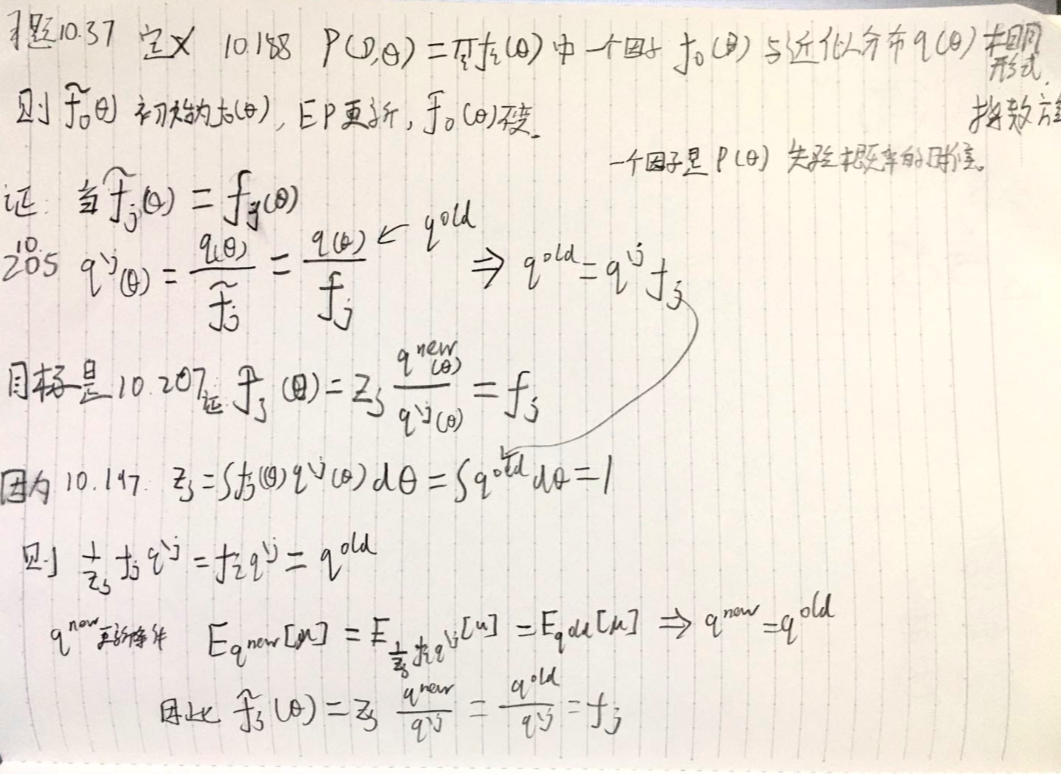 习题10.37 定义 10.188 P(D,θ) = ∏fᵢ(θ) 中一个因子 f₀(θ) 与近似分布q(θ) 相同形式,
指数族
则 f̃₀(θ) 初始为f₀(θ), EP更新, f̃₀(θ)不变.
一个因子是 P(θ) 先验概率的时候。
证: 当 f̃ⱼ(θ) = fⱼ(θ)
10.205 q^{\j}(θ) = q(θ)/f̃ⱼ = q(θ)/fⱼ ← q^{old} ⇒ q^{old} = q^{\j} fⱼ
目标是10.207证 f̃ⱼ(θ) = Zⱼ q^{new}(θ)/q^{\j}(θ) = fⱼ
因为 10.197. Zⱼ = ∫fⱼ(θ) q^{\j}(θ) dθ = ∫q^{old} dθ = 1
则 1/Zⱼ fⱼ q^{\j} = fⱼ q^{\j} = q^{old}
q^{new}更新条件 E_{q^{new}}[u] = E_{1/Zⱼ fⱼ q^{\j}}[u] = E_{q^{old}}[u] ⇒ q^{new} = q^{old}
因此 f̃ⱼ(θ) = Zⱼ q^{new}/q^{\j} = q^{old}/q^{\j} = fⱼ